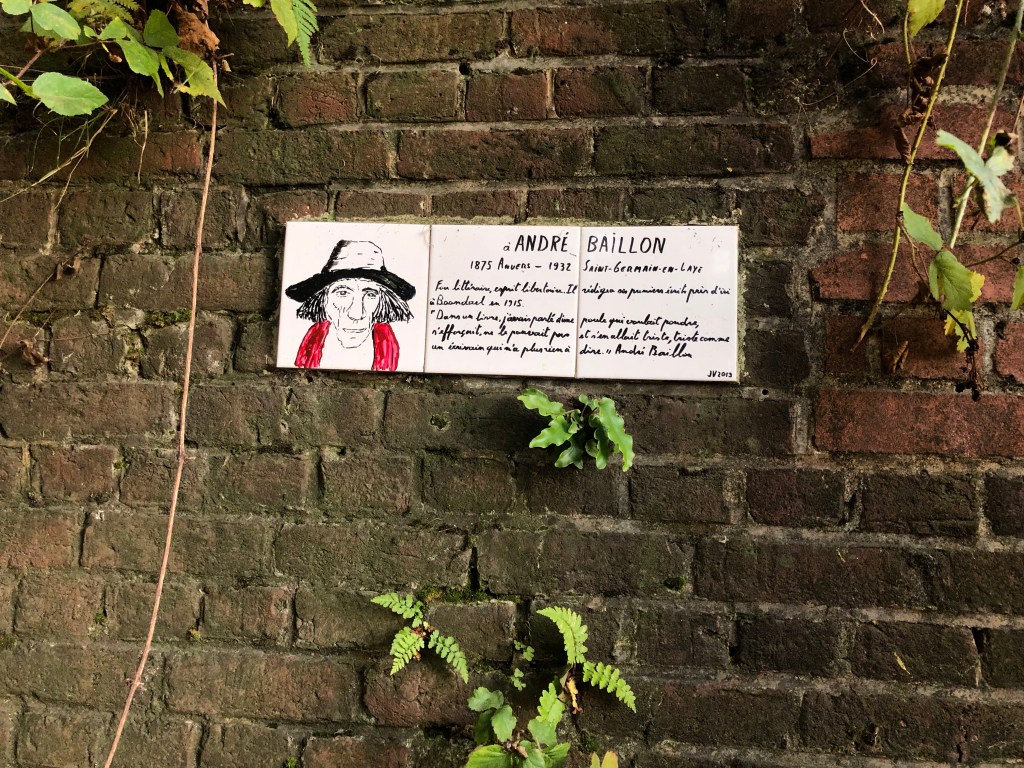 à ANDRÉ BAILLON
1875 ANVERS – 1932 SAINT-GERMAIN-EN-LAYE
Fou littéraire, esprit libertaire. Il rédigea ses premiers écrits près d'ici
à Boondael en 1915.
"Dans un livre, j'avais parlé d'une poule qui voulait pondre,
s'efforçait, ne le pouvait pas et s'en allait triste, triste comme
un écrivain qui n'a plus rien à dire." André Baillon
JV2019